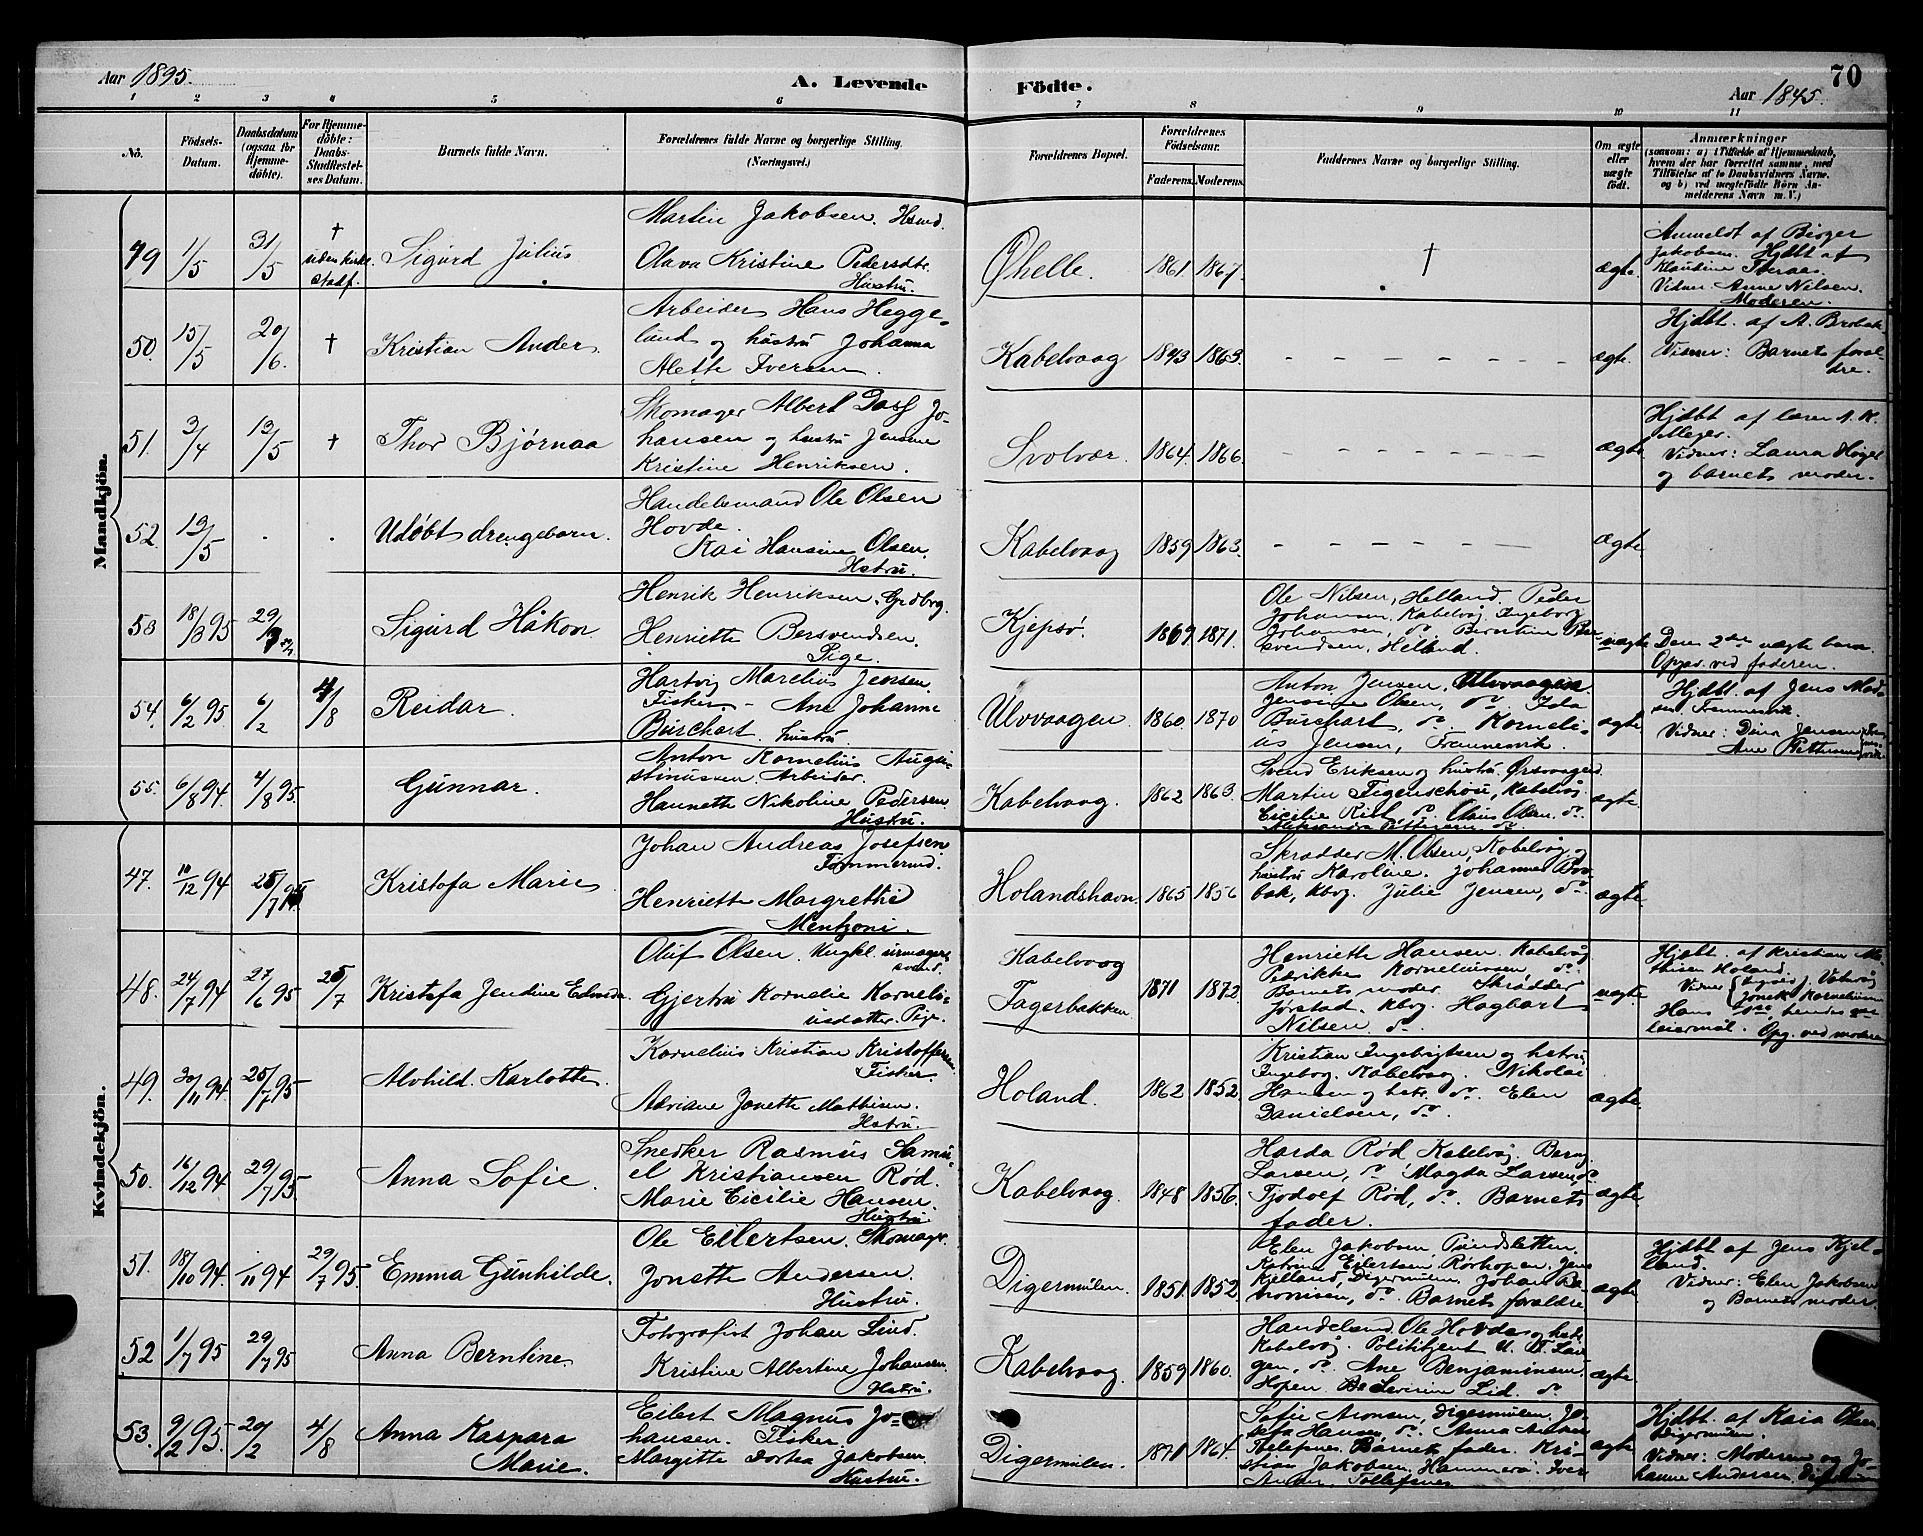 Aar 1895.
A. Levende Födte.
Aar 1895.
70
1 2 3 4 5 6 7 8 9 10 11
No.
Födsels-Datum.
Daabsdatum (ogsaa for Hjemme-döbte).
For Hjemme-döbte: Daabs-Stadfæstel-ses Datum.
Barnets fulde Navn.
Forældrenes fulde Navne og borgerlige Stilling. (Næringsvei.)
Forældrenes Bopæl.
Forældrenes Födselsaar.
Faderens. Moderens.
Faddernes Navne og borgerlige Stilling.
Om ægte eller uægte födt.
Anmærkninger
(saasom: a) i Tilfælde af Hjemmedaab, hvem der har forrettet samme, med Tilföielse af to Daabsvidners Navne. og b) ved uægtefödte Börn An-melderens Navn m. V.)
Mandkjön.
49 1/5 31/5 † uden kirke. stadf. Sigurd Julius
Martin Jakobsen.
Olava Kristine Pedersdtr. Hustru.
Øhelle. 1861 1867. † ægte.
Anmeldt af Birger
Jakobsen. Hjdbt af
Vidner Anne Nilsen.
Moderen.
50. 15/5 20/6. † Kristian Ander
Arbeider Hans Hegge-
land og hustru Johanna
Alette Iversen.
Kabelvaag 1863. ægte.
Hjdbt. af A. Brobak
Vidner: Barnets foræl-
dre.
51. 3/4 13/5 † Thor Bjørnaa
Skomager Albert Dass Jo-
hansen og hustru Jensine
Kristine Henriksen.
Svolvær. 1864. 1866. ægte
Hjdbt af lærer A. K.
Meyer.
Vidner: Laura Høyer
og barnets moder.
52. 12/5 Udøbt drengebarn.
Handelsmand Ole Olsen
Hovde.
Kai Hansine Olsen.
Hstru.
Kabelvaag 1859 1863. Ægte
53 18/3 95 29/ Sigurd Håkon.
Henrik Henriksen. Grdbrg.
Henriette Bersvendsen.
Pige.
Kjepsø. 1869. 1871.
Ole Nilsen, Helland. Peder
Johansen, Kabelvåg. Ingeborg
Johansen, do. Berntine Ber-
svendsen, Helland.
uægte
Dens 2de uægte barn
Opgav. ved faderen.
54. 6/2 95. 6/2 4/8 Reidar.
Hartvig Marelius Jensen.
Fisker - Ane Johanne
Burchart. hustru
Ulvvaagen 1860. 1870
Anton Jensen, Ulvvaagen.
Jensine Olsen, do Ida
Burchart, do. Korneli-
us Jensen, Framnesvik.
ægte
Hjdbt. af Jens Mad-
sen Framnesvik.
Vidner: Dina Jensen
Ane Pettersen
55. 6/8 94. 4/8 95. Gunnar.
Anton Kornelius Augu-
stinussen Arbeider.
Hannette Nikoline Pedersen.
Hustru.
Kabelvaag. 1862 1863.
Svend Eriksen og hustru. Ørsvaagen.
Martin Figenschou, Kabelvåg.
Cicilie Rist, do. Claus Olsen. do.
Aleksandra Pettersen do.
ægte.
Kvindekjön.
47. 10/12 94 25/7 95 Kristofa Marie
Johan Andreas Josefsen
Tømmermd.
Henriette Margrethe
Mentzoni.
Holandshavn. 1865 1856
Skrædder M. Olsen, Kabelvåg og
hustru Karoline. Johannes Bro-
bak, Kbvg. Julie Jensen, do.
ægte.
48. 24/7 94 27/6 95 25/7 Kristofa Jendine Edvarda
Oluf Olsen. Ungkl. urmager-
svend.
Gjertru Kornelie Korneli-
usdatter. Pige.
Kabelvaag
Fagerbakken. 1871 1872
Henriette Hansen. Kabelvåg
Petrikke Korneliussen, do.
Barnets moder. Skrædder
Jørstad, Kbvg. Hagbart
Nilsen, do
uægte
Hjdbt. af Kristian Ma-
thisen Holand.
Vidner
Jonette Korneliussen
leiermål. Opg. ved moderen
49. 30/11 94. 25/7 95 Alvhild Karlotte.
Kornelius Kristian Kristoffersen
Fisker.
Adriane Jonette Mathisen.
Hstru.
Holand. 1862 1852
Kristian Ingebrigtsen og hstru
Ingebog. Kabelvaag. Nikolai
Hansen og hstr. do. Elen
Danielsen, do.
ægte.
50. 16/12 94 29/7 95. Anna Sofie.
Snedker Rasmus Samu-
el Kristiansen Rød.
Marie Cicilie Hansen.
Hustru.
Kabelvaag. 1848 1856.
Harda Rød Kabelvåg. Berg.
Larsen, do Magda Larsen, do
Tjodolf Rød, do. Barnets
fader.
ægte
51. 18/10 94. /11 94 29/7 95. Emma Gunhilde.
Ole Eilertsen. Skomager.
Jonette Andersen.
Hustru.
Digermulen. 1851. 1852.
Elen Jakobsen, Pundsletten.
Katrine Eilertsen Rørhopen. Jens
Kjelland, Digermulen. Johan
do. Barnets forældre
ægte
Hjdbt af Jens Kjel-
land.
Vidner: Elen Jakobsen
og Barnets moder.
52 1/7 95 29/7 95 Anna Berntine
Fotografist Johan Lind.
Kristine Albertine Johansen.
Hstru.
Kabelvaag. 1859 1860.
Handelsmd. Ole Hovde og hstr.
Kabelvåg. Politibtjent
do. Ane Benjaminsen,
Hopen. Severin Lid. do
ægte
53. 9/2 95. 20/2 4/8 Anna Kaspara
Marie.
Eilert Magnus Jo-
hansen. Fisker.
Margitte Dortea Jakobsen.
Hustru.
Digermulen. 1870 1864.
Sofie Aronsen, Digermulen. Jo-
sefa Hansen, do. Anna
Tollefsen. Barnets fader. Kri-
stian Jakobsen, Hammerø.
Tollefsen
ægte
Hjdbt. af Kaia Olsen.
Digermulen.
Vidner: Moderen og Jo-
hanne Andersen, Digermulen